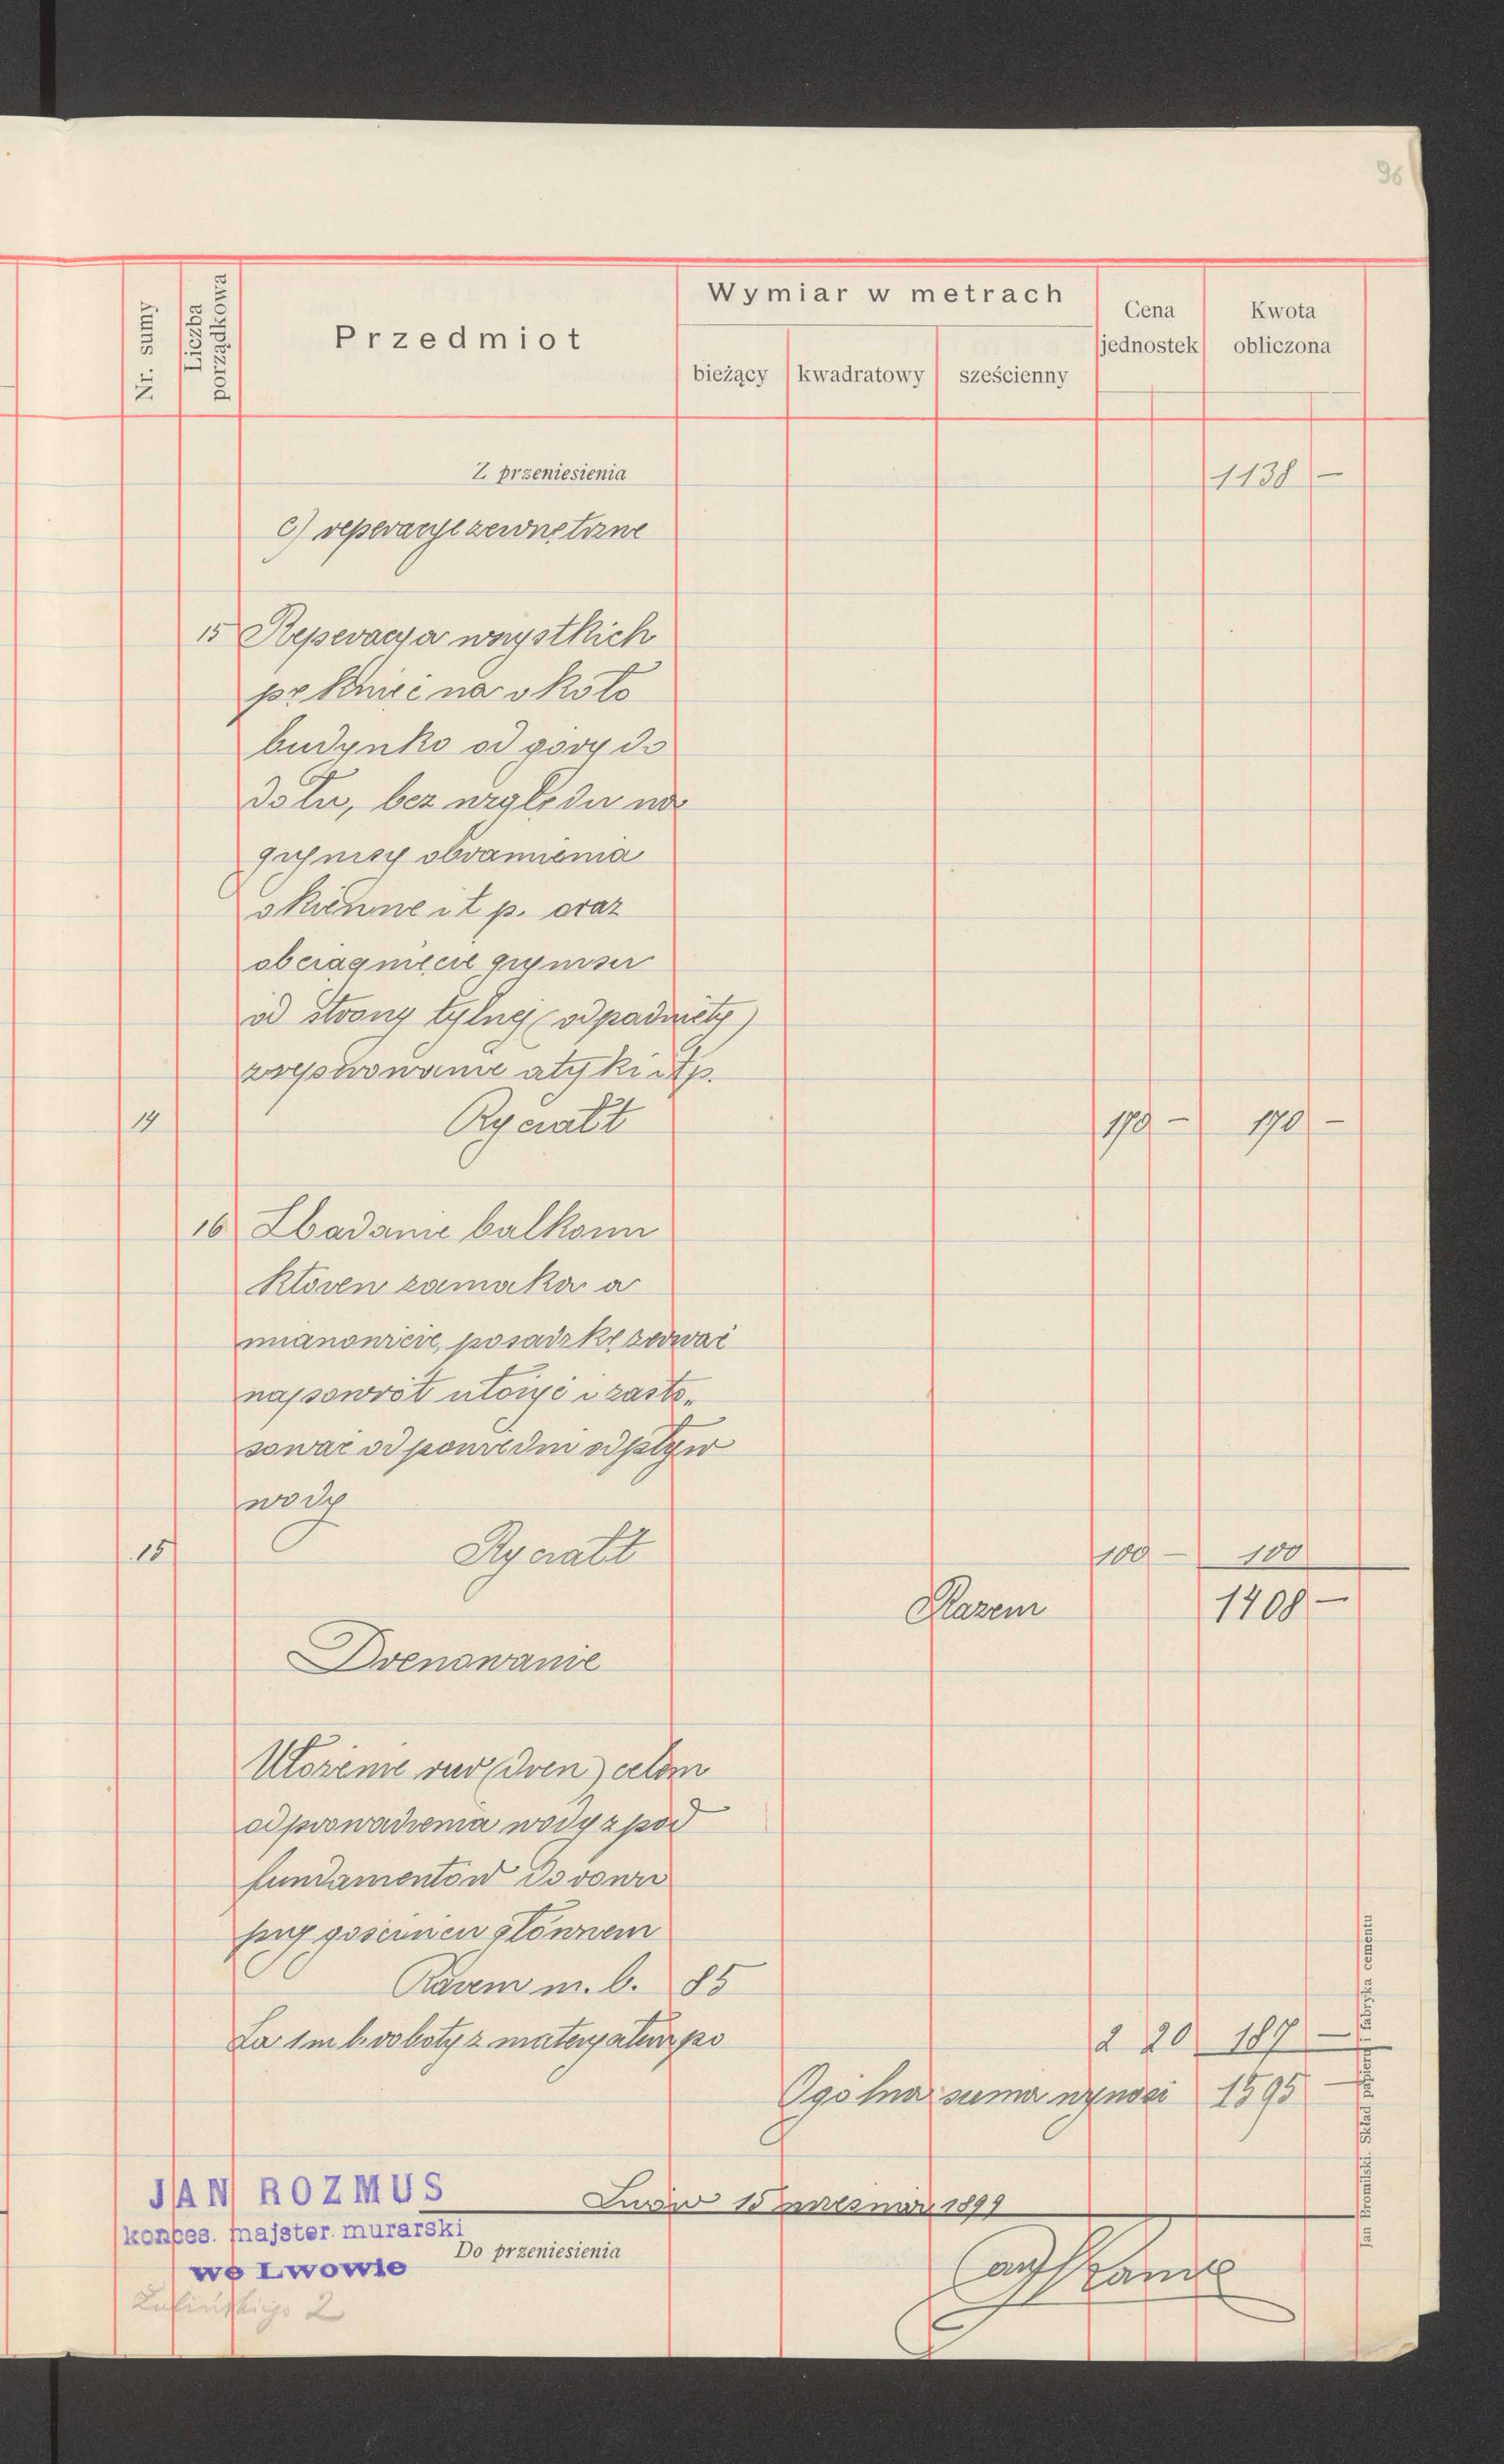 96
Nr. sumy
Liczba porządkowa
Przedmiot
Wymiar w metrach
bieżący kwadratowy sześcienny
Cena jednostek
Kwota obliczona
Z przeniesienia 1138 –
c) reperacye zewnętrzne
15 Reperacya wszystkich
pęknięć na około
budynku od góry do
dołu, bez względu na
gzymsy obramienia
okienne i t p. oraz
obciągnięcie gzymsu
od strony tylnej (odpadnięty)
zreperowanie atyki itp.
14 Ryczałt 170 – 170 –
16 Zbadanie balkonu
który zamaka a
mianowicie, posadzkę zerwać
napowrót ułożyć i zasto-
sować odpowiedni odpływ
wody
15 Ryczałt 100 – 100
Razem 1408 –
Drenowanie
Ułożenie rur (dren) celem
odprowadzenia wody z pod
fundamentów do rowu
przy gościńcu głównem
Razem m. b. 85
Za 1 m b. roboty z materyałem po 2 20 187 –
Ogólna suma wynosi 1595 –
JAN ROZMUS
konces. majster murarski
we Lwowie
Lwów 15 września 1899
Do przeniesienia
Jan Bromilski. Skład papieru i fabryka cementu